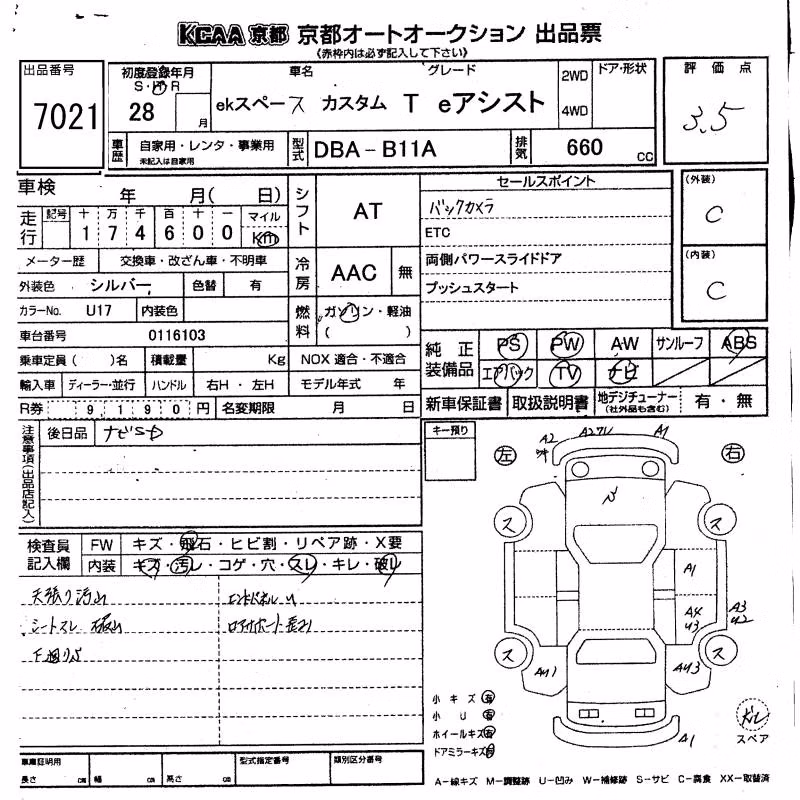 KCAA 京都 京都オートオークション 出品票
《赤枠内は必ず記入して下さい》
出品番号
7021
初度登録年月
S・H・R
28
月
車名
グレード
ekスペース カスタム T eアシスト
2WD
4WD
ドア・形状
評価点
3.5
車歴
自家用・レンタ・事業用
未記入は自家用
型式
DBA－B11A
排気
660
cc
車検
年 月( 日)
走行
記号
十 万 千 百 十 一
1 7 4 6 0 0
マイル
Km
シフト
AT
セールスポイント
バックカメラ
ETC
両側パワースライドドア
プッシュスタート
(外装)
C
(内装)
C
メーター歴
交換車・改ざん車・不明車
冷房
AAC
無
外装色
シルバー
色替
有
カラーNo.
U17
内装色
燃料
ガソリン・軽油
( )
車台番号
0116103
乗車定員( )名
積載量
Kg
NOX 適合・不適合
純正装備品
PS
PW
AW
サンルーフ
ABS
エアバック
TV
ナビ
輸入車
ディーラー・並行
ハンドル
右H・左H
モデル年式 年
R券
9190円
名変期限
月 日
新車保証書
取扱説明書
地デジチューナー
(社外品も含む)
有・無
注意事項(出品店記入)
後日品
ナビSD
キー預り
左
右
A2
A1
A1
A4
U3
A3
U2
AU1
AU3
A1
ス
ス
ス
ス
検査員記入欄
FW
キズ・飛石・ヒビ割・リペア跡・X要
内装
キズ・汚レ・コゲ・穴・スレ・キレ・破レ
天張り汚れ
シートスレ 破れ
下廻りS
エンドパネルU
小キズ有
小U有
ホイールキズ有
ドアミラーキズ有
スペア
車庫証明用
長さ cm
幅 cm
高さ cm
型式指定番号
類別区分番号
A－線キズ M－調整跡 U－凹み W－補修跡 S－サビ C－腐食 XX－取替済